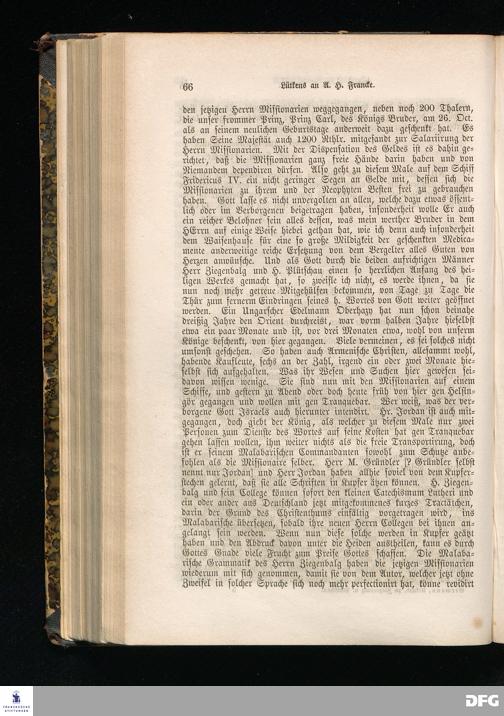 66 Lütkens an A. H. Francke.
den jetzigen Herrn Missionarien weggegangen, neben noch 200 Thalern,
die unser frommer Prinz, Prinz Carl, des Königs Bruder, am 26. Oct.
als an seinem neulichen Geburtstage anderweit dazu geschenkt hat. Es
haben Seine Majestät auch 1200 Rthlr. mitgesandt zur Salariirung der
Herrn Missionarien. Mit der Dispensation des Geldes ist es dahin ge-
richtet, daß die Missionarien ganz freie Hände darin haben und von
Niemandem dependiren dürfen. Also geht zu diesem Male auf dem Schiff
Fridericus IV. ein nicht geringer Segen an Gelde mit, dessen sich die
Missionarien zu ihrem und der Neophyten Besten frei zu gebrauchen
haben. Gott lasse es nicht unvergolten an allen, welche dazu etwas öffent-
lich oder im Verborgenen beigetragen haben, insonderheit wolle Er auch
ein reicher Belohner sein alles dessen, was mein werther Bruder in dem
HErrn auf einige Weise hiebei gethan hat, wie ich denn auch insonderheit
dem Waisenhause für eine so große Mildigkeit der geschenkten Medica-
mente anderweitige reiche Ersetzung von dem Vergelter alles Guten von
Herzen anwünsche. Und als Gott durch die beiden aufrichtigen Männer
Herr Ziegenbalg und H. Plütschau einen so herrlichen Anfang des hei-
ligen Werkes gemacht hat, so zweifle ich nicht, es werde ihnen, da sie
nun noch mehr getreue Mitgehülfen bekommen, von Tage zu Tage die
Thür zum fernern Eindringen seines h. Wortes von Gott weiter geöffnet
werden. Ein Ungarscher Edelmann Oberhazy hat nun schon beinahe
dreißig Jahre den Orient durchreist, war vorm halben Jahre hieselbst
etwa ein paar Monate und ist, vor drei Monaten etwa, wohl von unserm
Könige beschenkt, von hier gegangen. Viele vermeinen, es sei solches nicht
umsonst geschehen. So haben auch Armenische Christen, allesammt wohl,
habende Kaufleute, sechs an der Zahl, irgend ein oder zwei Monate hie-
selbst sich aufgehalten. Was ihr Wesen und Suchen hier gewesen sei-
davon wissen wenige. Sie sind nun mit den Missionarien auf einem
Schiffe, und gestern zu Abend oder doch heute früh von hier gen Helsin-
gör gegangen und wollen mit gen Tranquebar. Wer weiß, was der ver-
borgene Gott Israels auch hierunter intendirt. Hr. Jordan ist auch mit-
gegangen, doch giebt der König, als welcher zu diesem Male nur zwei
Personen zum Dienste des Wortes auf seine Kosten hat gen Tranquebar
gehen lassen wollen, ihm weiter nichts als die freie Transportirung, doch
ist er seinem Malabarischen Commandanten sowohl zum Schutze anbe-
fohlen als die Missionaire selber. Herr M. Gründler [? Gründler selbst
nennt nur Jordan] und Herr Jordan haben allhie soviel von dem Kupfer-
stechen gelernt, daß sie alle Schriften in Kupfer ätzen können. H. Ziegen-
balg und sein College können sofort den kleinen Catechismum Lutheri und
ein oder ander aus Deutschland jetzt mitgekommenes kurzes Tractätchen,
darin der Grund des Christenthums einfältig vorgetragen wird, ins
Malabarische übersetzen, sobald ihre neuen Herrn Collegen bei ihnen an-
gelangt sein werden. Wenn nun diese solche werden in Kupfer geätzt
haben und den Abdruck davon unter die Heiden austheilen, kann es durch
Gottes Gnade viele Frucht zum Preise Gottes schaffen. Die Malaba-
rische Grammatik des Herrn Ziegenbalg haben die jetzigen Missionarien
wiederum mit sich genommen, damit sie von dem Autor, welcher jetzt ohne
Zweifel in solcher Sprache sich noch mehr perfectionirt hat, könne revidirt
FRANCKESCHE
STIFTUNGEN
DFG